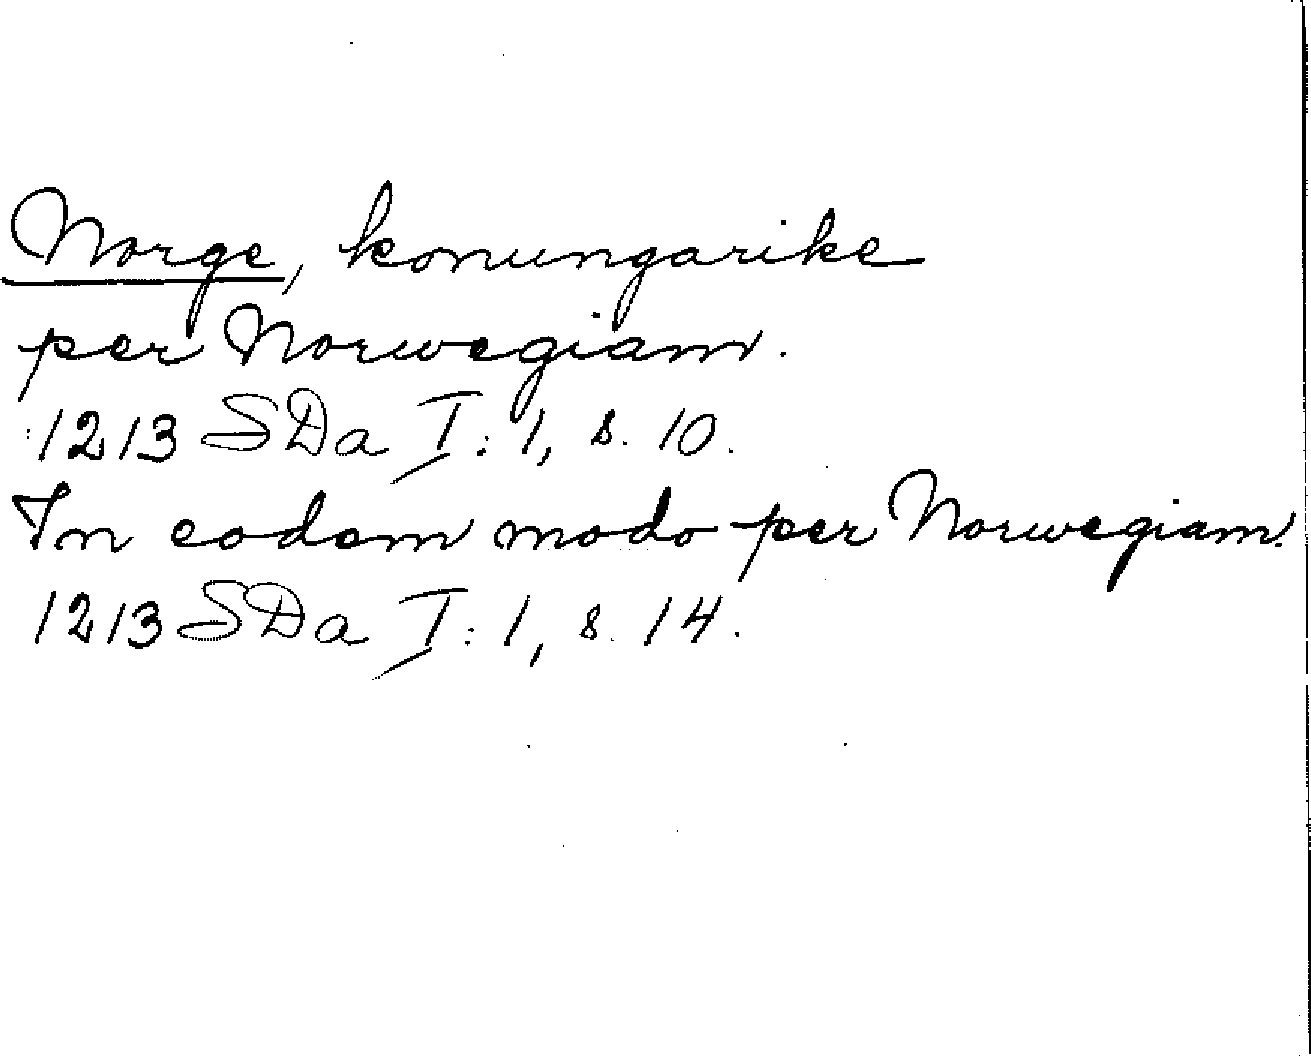 Norge, konungarike
per Norwegiam.
1213 SDa I:1, s. 10.
In eodem modo per Norwegiam.
1213 SDa I:1, s. 14.